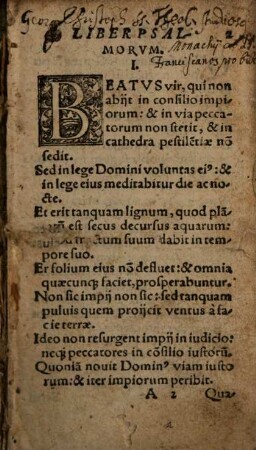 Georg Christoph ss. Theol. studiosus
LIBER PSAL 2
MORVM.
Monachij
Franciscanos pro
I.
BEATUS vir, qui non
abijt in consilio impi
orum: & in via pecca
torum non stetit, & in
cathedra pestilẽtiæ nō
sedit.
Sed in lege Domini voluntas ei⁹: &
in lege eius meditabitur die ac no-
cte.
Et erit tanquam lignum, quod plã
est secus decursus aquarum:
suum dabit in tem
pore suo.
Et folium eius nō defluet: & omnia
quæcunq; faciet, prosperabuntur.
Non sic impij non sic: sed tanquam
puluis quem proijcit ventus à fa
cie terræ.
Ideo non resurgent impij in iudicio:
neq; peccatores in cōsilio iustorũ.
Quoniã nouit Domin⁹ viam iusto
rum: & iter impiorum peribit.
A 2 Qua-